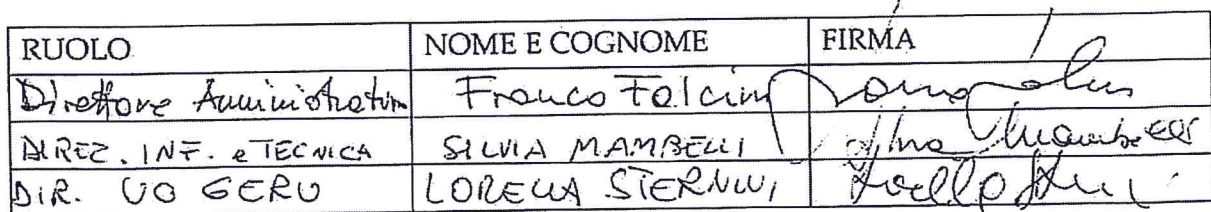 RUOLO NOME E COGNOME FIRMA
Direttore Amministrativo Franco Falcini
DIREZ. INF. e TECNICA SILVIA MAMBELLI Silvia Mambelli
DIR. UO GERU LORELLA STERNINI